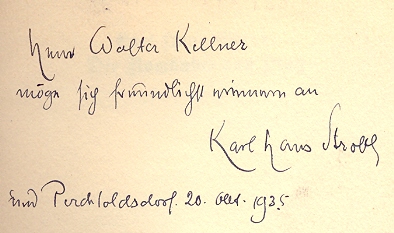 Herr Walter Kellner
möge sich freundlichst erinnern an
Karl Hans Strobl
und Perchtoldsdorf. 20. Okt. 1935